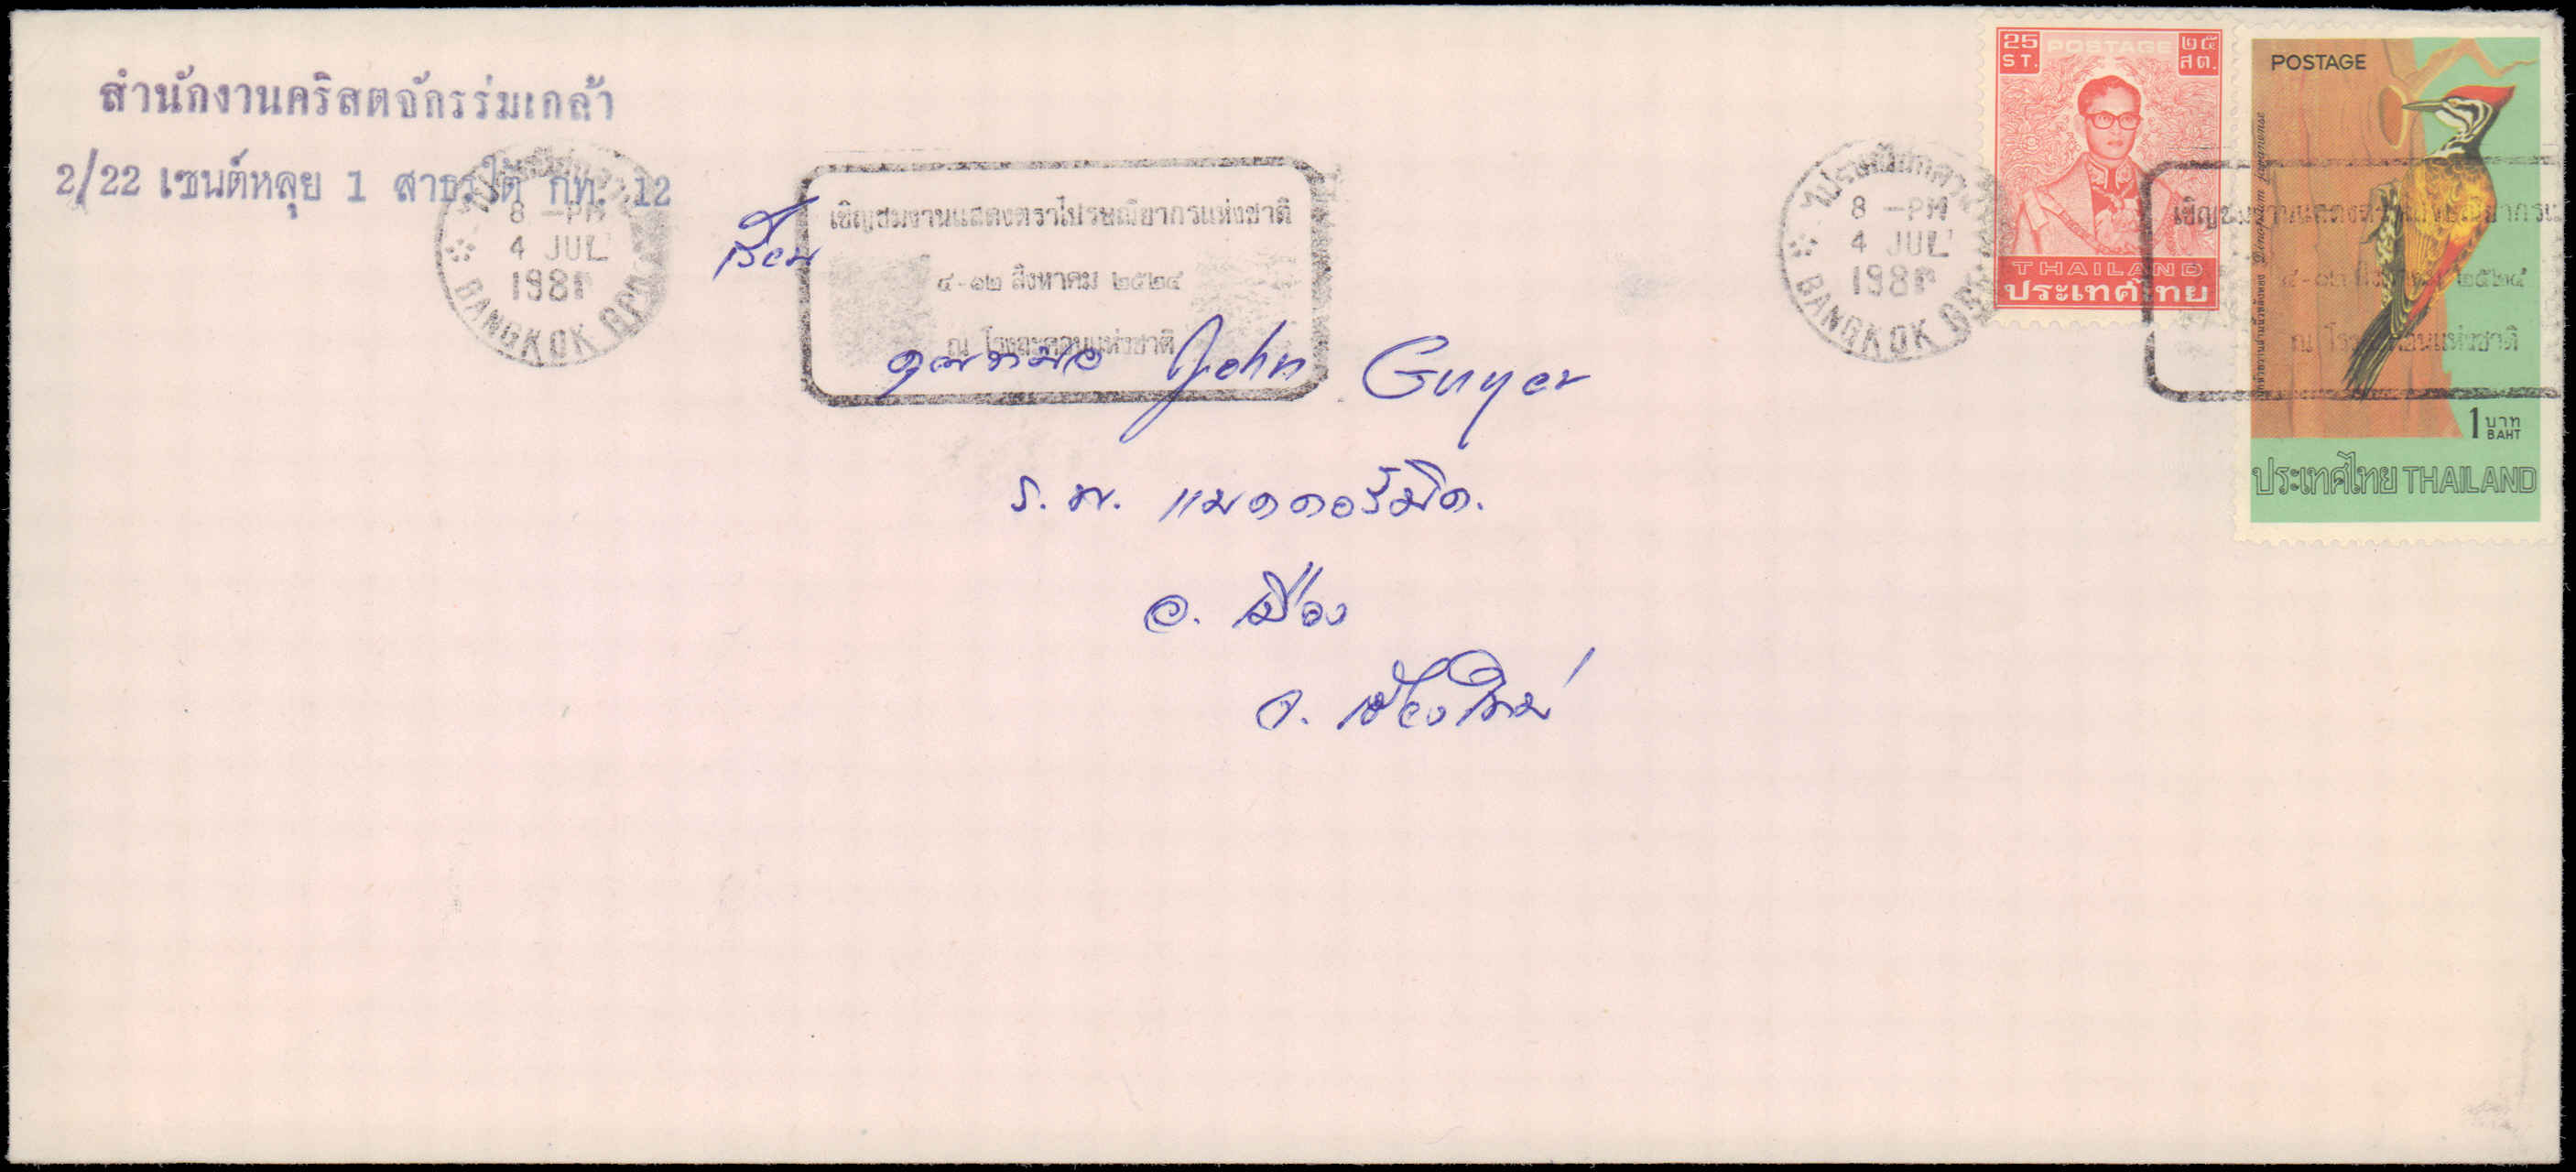 สำนักงานคริสตจักรร่มเกล้า
2/22 เซนต์หลุย 1 สาธรใต้ กท. 12
ไปรษณีย์กลาง
8 -PM
4 JUL
1981
BANGKOK GPO
เชิญชมงานแสดงตราไปรษณียากรแห่งชาติ
๔-๑๒ สิงหาคม ๒๕๒๔
ณ โรงละคอนแห่งชาติ
เรียน
คุณหมอ John Guyer
ร.พ. แมคคอร์มิค.
อ. เมือง
จ. เชียงใหม่
ไปรษณีย์กลาง
8 -PM
4 JUL
1981
BANGKOK GPO
25 ST. POSTAGE ๒๕ สต.
THAILAND
ประเทศไทย
เชิญชมงานแสดงตราไปรษณียากร
๔-๑๒ สิงหาคม ๒๕๒๔
ณ โรงละคอนแห่งชาติ
POSTAGE
Dinopium javanense
1 บาท BAHT
ประเทศไทย THAILAND